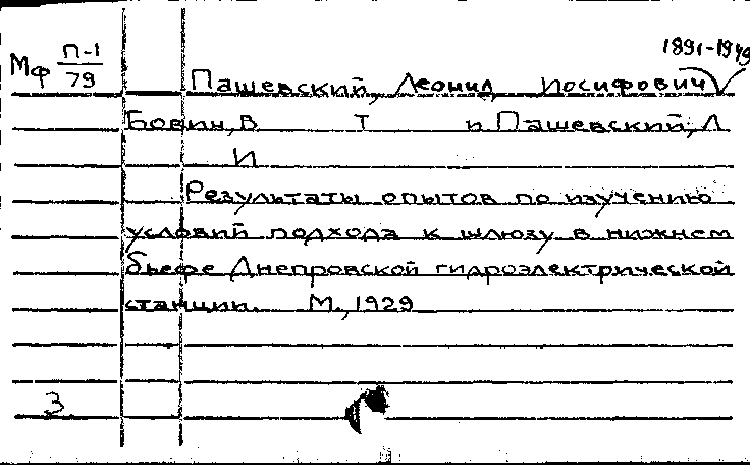 1891-1949
Мф П-1/79
Пашевский, Леонид Иосифович
Бовин, В Т и Пашевский, Л
И
Результаты опытов по изучению
условий подхода к шлюзу в нижнем
бьефе Днепровской гидроэлектрической
станции. М., 1929
3